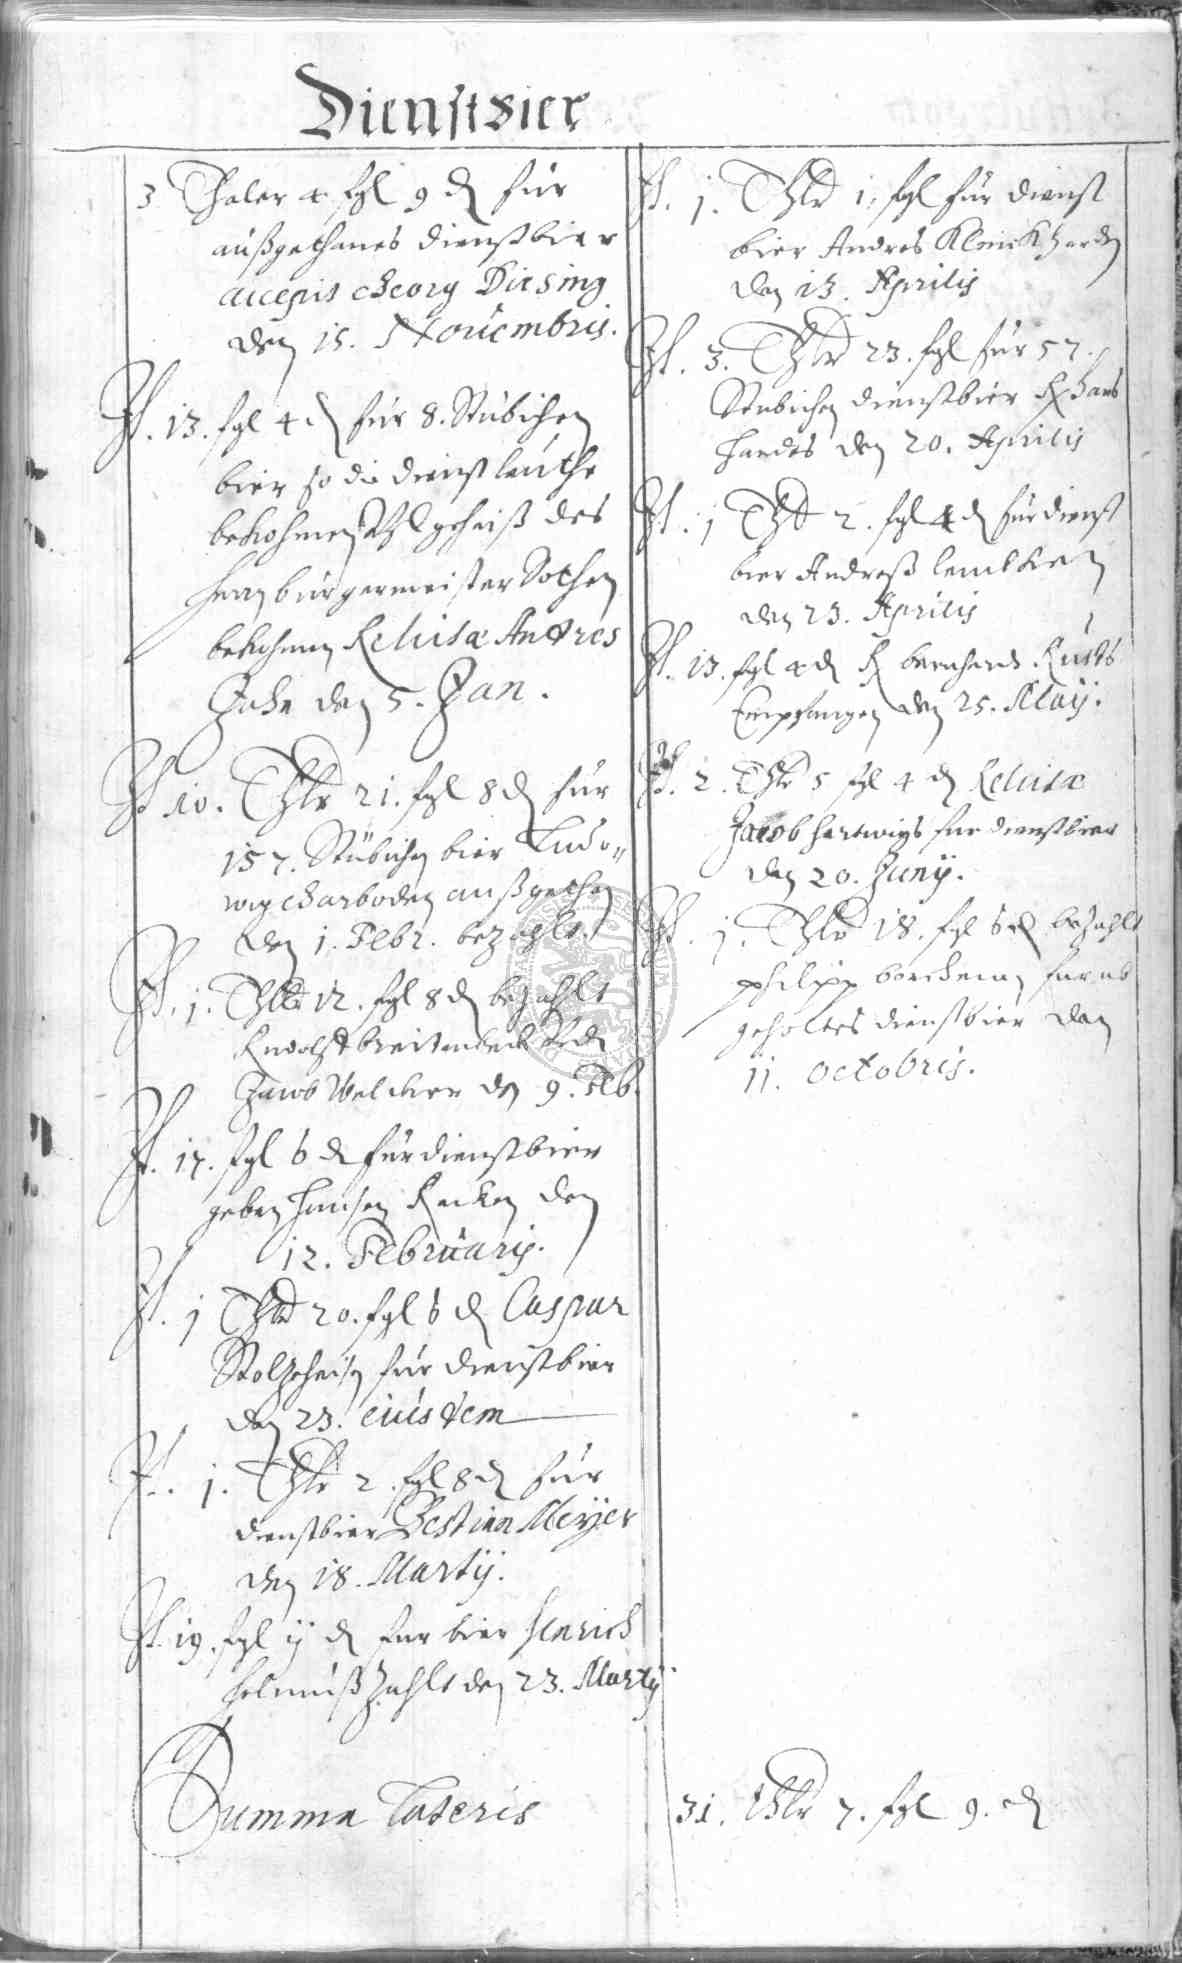 Dienstbier
3 Thaler 4 fgl 9 d für
außgethanes dienstbier
accepit Georg Diesing
den 15. Novembris.
It. 13. fgl 4 d für 8. Stübichen
bier so die dienstleuthe
bekohmen geheiß des
herrn bürgermeister
bekohmen Reluisæ Andres
Jahn den 5. Jan.
It 10. Thlr 21. fgl 8 d für
157. Stübichen bier Ludo-
wig Garboden außgethan
den 1. Febr. bezahlt.
It. 1. Thlr 12. fgl 8 d bezahlt
Rudolff
Jacob Welcker den 9. Feb.
It. 17. fgl 6 d für dienstbier
geben Hansen Racken den
12. Februarij.
It. 1 Thlr 20. fgl 6 d Caspar
für dienstbier
den 23. eiusdem
It. 1. Thlr 2. fgl 8 d für
dienstbier Bestian Meyer
den 18. Martij.
It. 19. fgl ij d für bier Henrich
Helmuß zahlt den 23. Martij
It. 1. Thlr 1. fgl für dienst
bier Andres
den 13. Aprilis
It. 3. Thlr 23. fgl für 57.
Stübichen dienstbier Hans
den 20. Aprilis
It. 1 Thlr 2. fgl 4 d für dienst
bier Andreß Lembken
den 23. Aprilis
It. 13. fgl 4 d bernhard Kusts
Empfangen den 25. Maij.
It. 2. Thlr 5 fgl 4 d Reluisæ
Jacob Hartwigs für dienstbier
den 20. Junij.
It. 1. Thlr 18. fgl 6 d bezahlt
philipp für ab
geholtes dienstbier den
11. Octobris.
Summa Lateris 31. Thlr 7. fgl 9. d